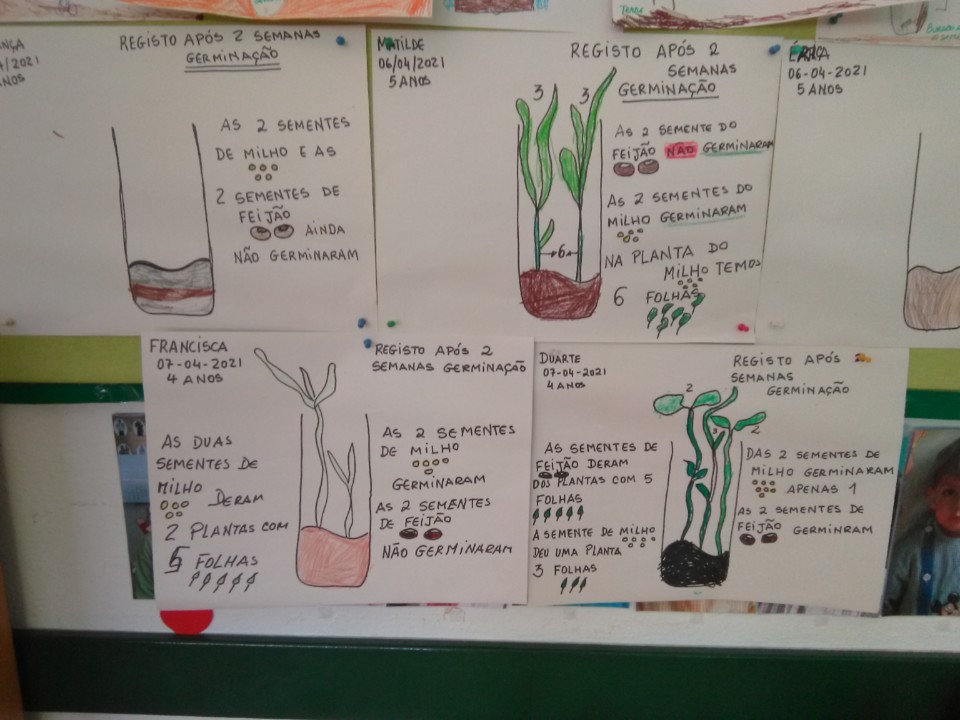 TERRA
4/2021
REGISTO APÓS 2 SEMANAS
GERMINAÇÃO
AS 2 SEMENTES
DE MILHO E AS
2 SEMENTES DE
FEIJÃO
AINDA
NÃO GERMINARAM
MATILDE
06/04/2021
5 ANOS
REGISTO APÓS 2
SEMANAS
GERMINAÇÃO
3 3
6
AS 2 SEMENTE DO
FEIJÃO NÃO GERMINARAM
AS 2 SEMENTES DO
MILHO GERMINARAM
NA PLANTA DO
MILHO TEMOS
6 FOLHAS
06-04-2021
5 ANOS
FRANCISCA
07-04-2021
4 ANOS
REGISTO APÓS 2
SEMANAS GERMINAÇÃO
AS DUAS
SEMENTES DE
MILHO
DERAM
2 PLANTAS COM
5 FOLHAS
AS 2 SEMENTES
DE MILHO
GERMINARAM
AS 2 SEMENTES
DE FEIJÃO
NÃO GERMINARAM
DUARTE
07-04-2021
4 ANOS
REGISTO APÓS
SEMANAS
GERMINAÇÃO
2
3 2
AS SEMENTES DE
FEIJÃO DERAM
DOS PLANTAS COM 5
FOLHAS
A SEMENTE DE MILHO
DEU UMA PLANTA
3 FOLHAS
DAS 2 SEMENTES DE
MILHO GERMINARAM
APENAS 1
AS 2 SEMENTES DE
FEIJÃO GERMINRAM